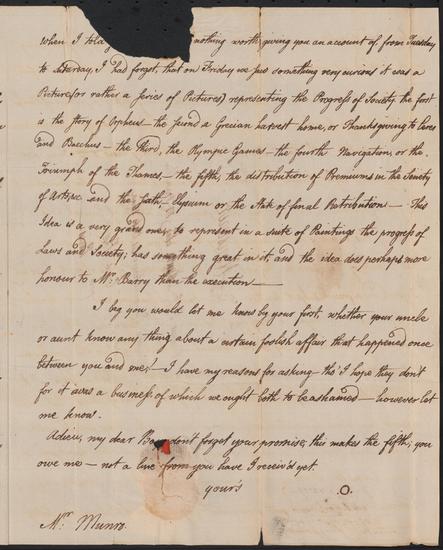 When I told nothing worth giving you an account of, from Tuesday
to Saturday, I had forgot, that on Friday we saw something very curious it was a
Picture (or rather a Series of Pictures) representing the Progress of Society, the first
is the story of Orpheus – the second a Grecian harvest home, or Thanksgiving to Ceres
and Bacchus – the Third, the Olympic Games – the fourth Navigation, or the
Triumph of the Thames – the fifth, the distribution of Premiums in the Society
of Arts &c and the Sixth – Elysium or the State of final Retribution – This
Idea is a very grand one, to represent in a suite of Paintings the progress of
Laws and Society, has something great in it, and the idea does perhaps more
honour to Mr. Barry than the execution –
I beg you would let me know by your first, whether your uncle
or aunt know any thing about a certain foolish affair that happened once
between you and me, – I have my reasons for asking tho' I hope they don't
for it was a business of which we ought both to be ashamed – however let
me know.
Adieu, my dear don't forget your promise, this makes the fifth, you
owe me – not a line from you have I receiv'd yet.
your's .O.
Mr. Munro.